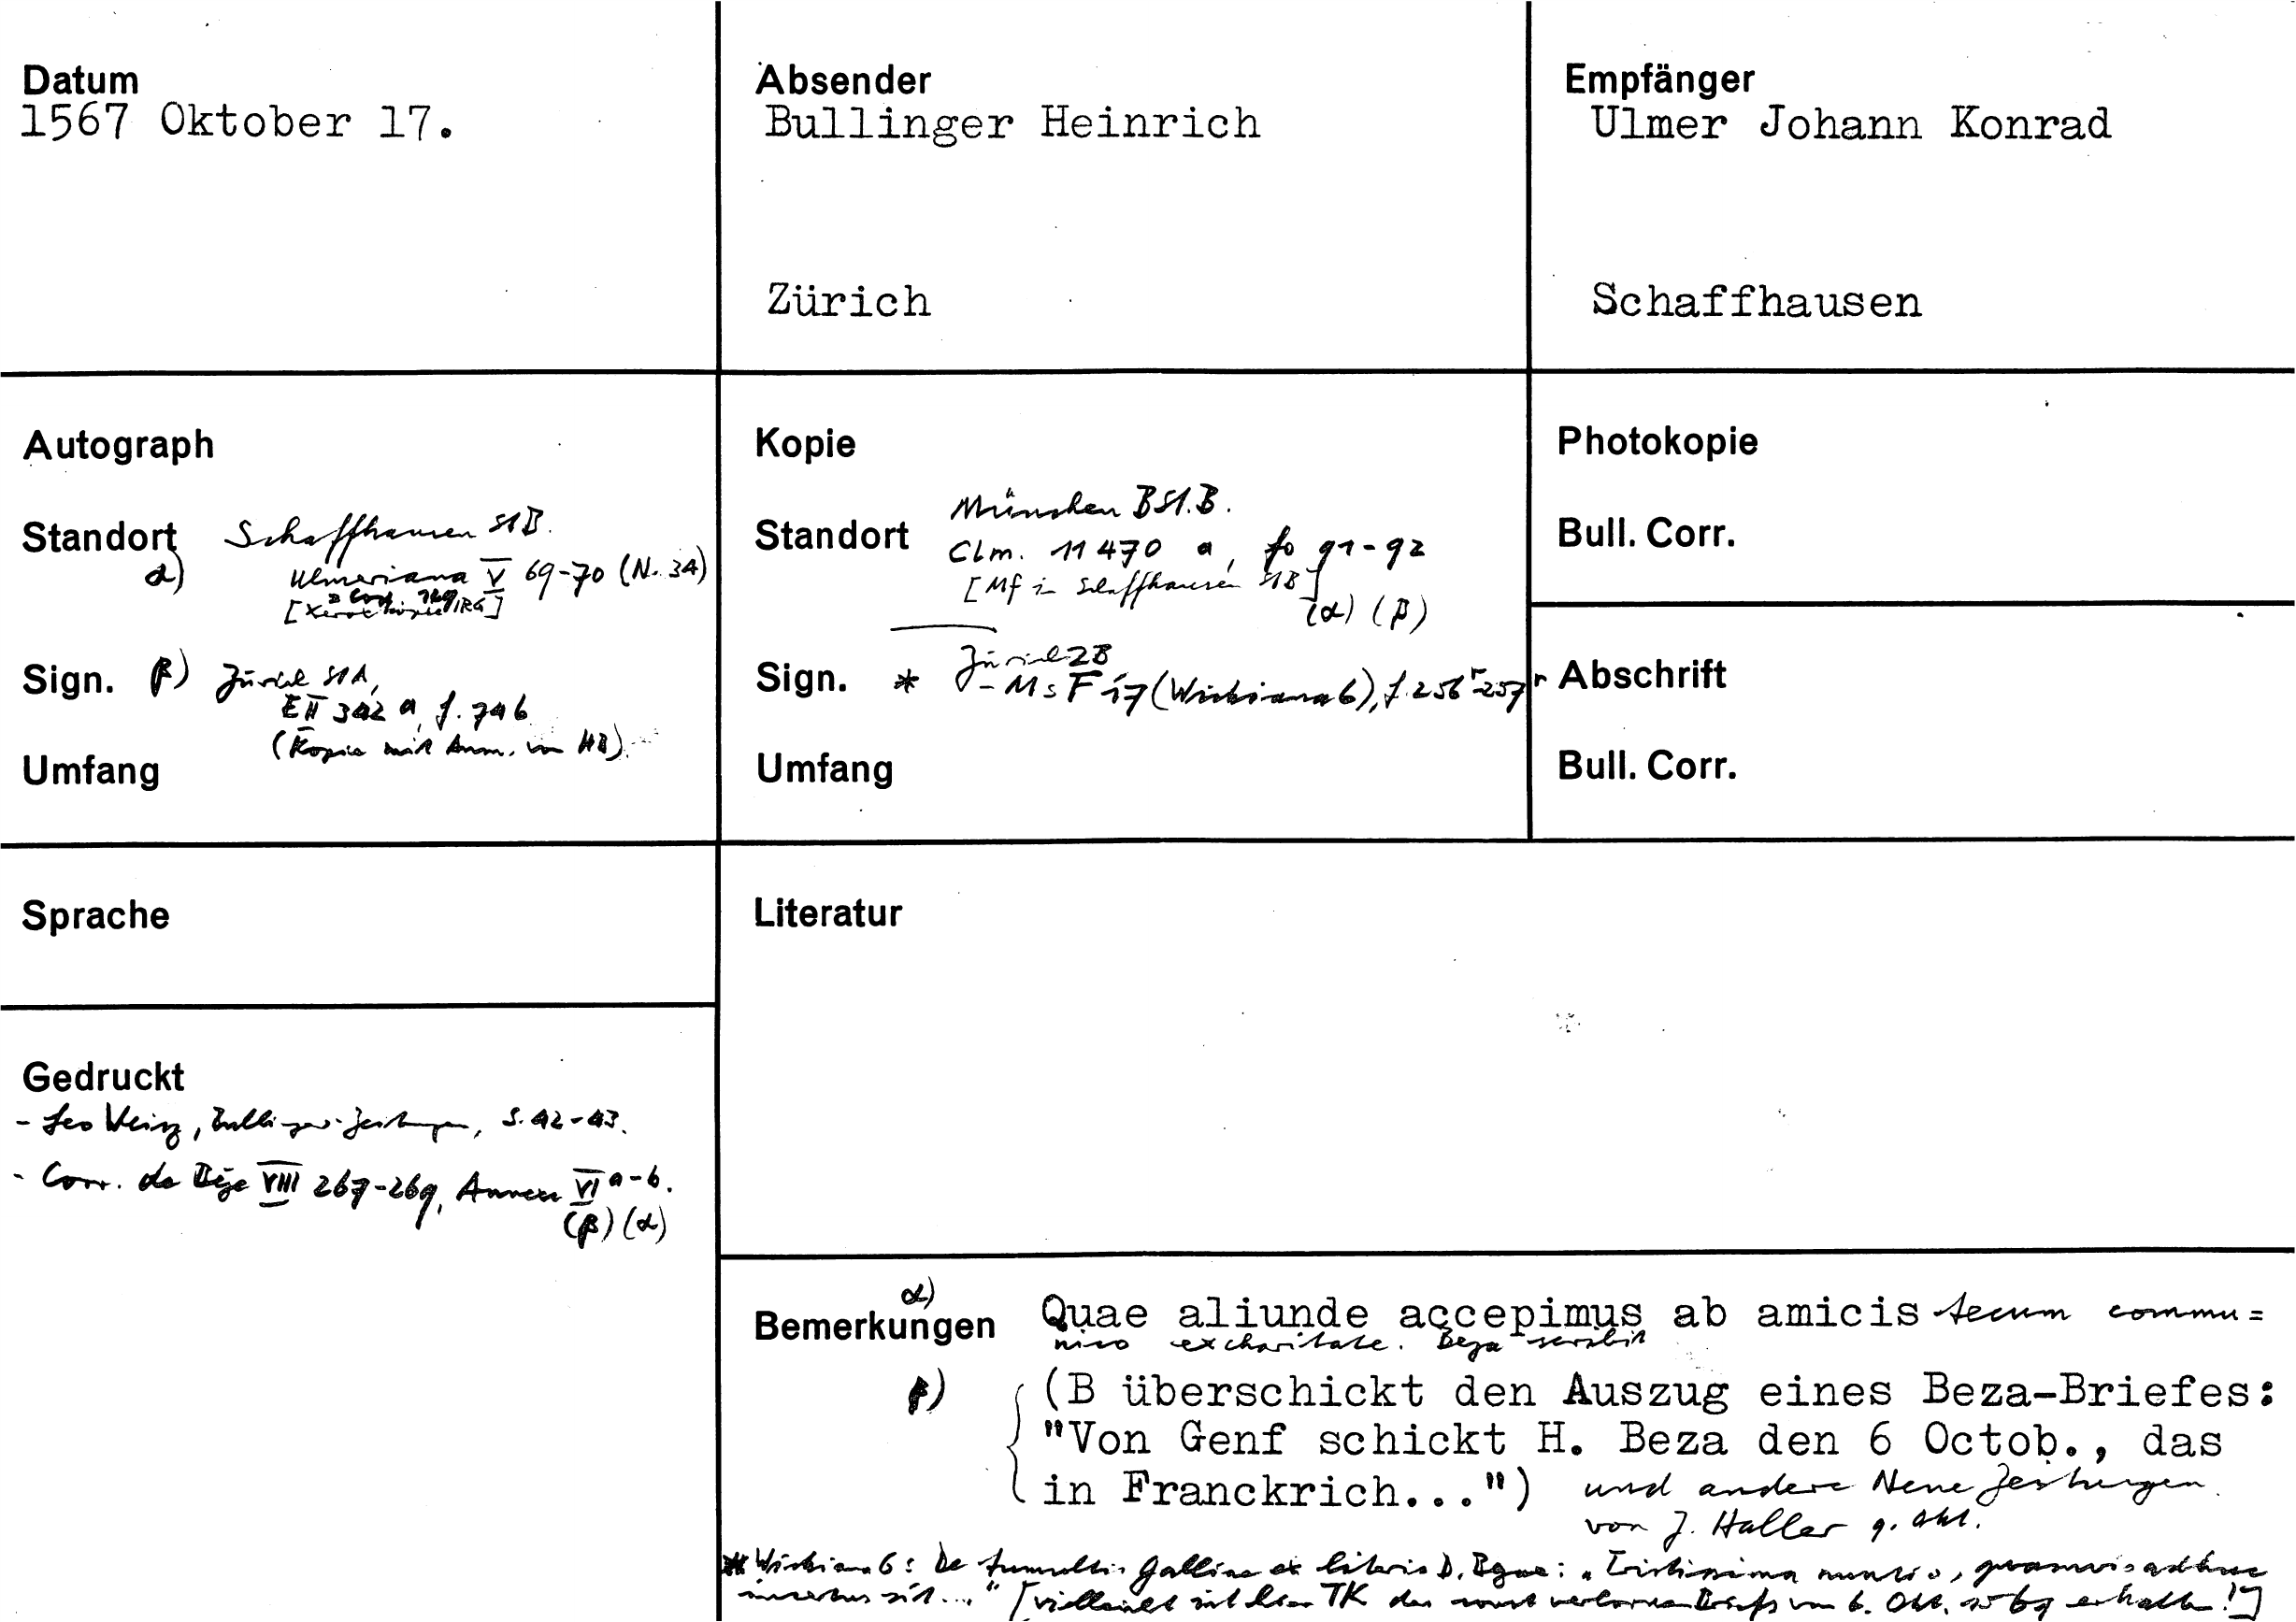 Datum
1567 Oktober 17.
Absender
Bullinger Heinrich
Zürich
Empfänger
Ulmer Johann Konrad
Schaffhausen
Autograph
Standort Schaffhausen StB.
α) Ulmeriana V 69-70 (N. 34)
[Xerokopie IRG]
Sign. β) Zürich StA,
E II 342 a, f. 746
(Kopie mit Anm. von HB)
Umfang
Kopie
Standort München BSt.B.
Clm. 11470 a, fo 91-92
[Mf in Schaffhausen StB]
(α) (β)
Sign. * Zürich ZB
- Ms F 17 (Wickiana 6), f. 256r-257r
Umfang
Photokopie
Bull. Corr.
Abschrift
Bull. Corr.
Sprache
Gedruckt
- Leo Weisz, Bullinger-Zeitungen, S. 42-43.
- Corr. de Bèze VIII 267-269, Annexe VI a-b.
(β) (α)
Literatur
Bemerkungen α) Quae aliunde accepimus ab amicis tecum commu=
nico ex charitate. Beza scribit
β) (B überschickt den Auszug eines Beza-Briefes:
"Von Genf schickt H. Beza den 6 Octob., das
in Franckrich...") und andere Neue Zeitungen
von J. Haller 9. Okt.
* Wickiana 6: De tumultu Gallico ex literis D. Bezae: "Tristissima nuntio, quamvis adhuc
incertus sit..." [vielleicht ist hier TK des sonst verlornen Briefs vom 6. Okt. 1567 erhalten!]